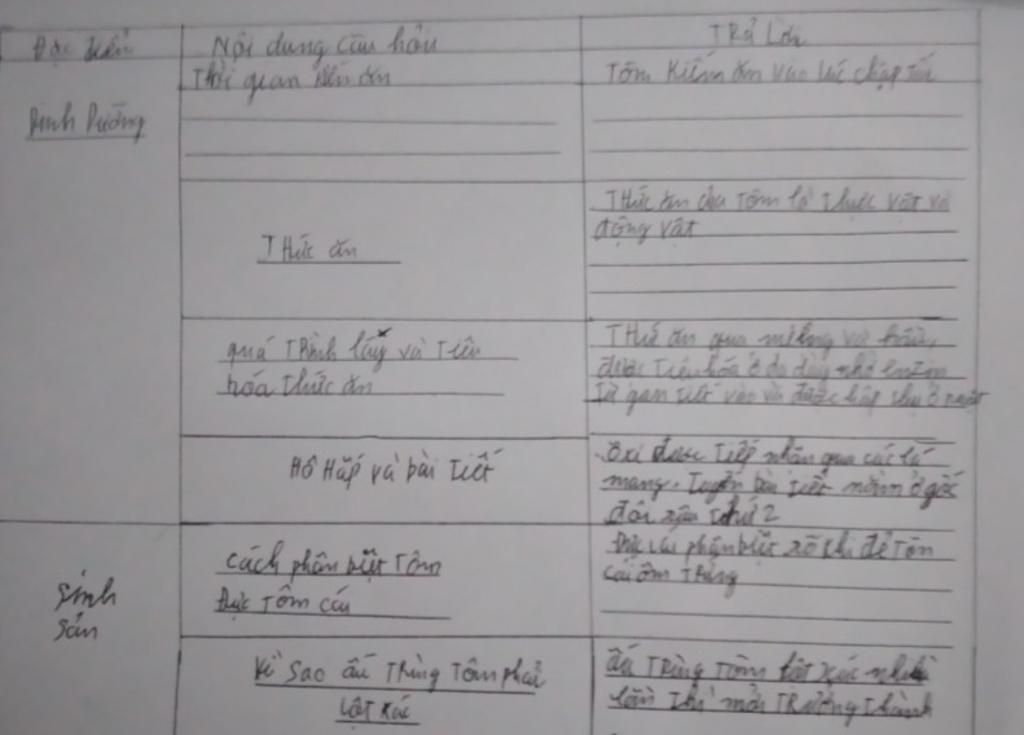 Đặc điểm
Nội dung câu hỏi
Trả Lời
Thời gian kiếm ăn
Tôm Kiếm ăn vào lúc chập tối
Dinh Dưỡng
THức ăn
THức ăn của Tôm là Thực vật và
động vật
quá TRình lấy và Tiêu
hóa Thức ăn
THức ăn qua miệng và hầu,
được Tiêu hóa ở dạ dày nhờ enzim
Từ gan tiết vào và được hấp thụ ở ruột
Hô Hấp và bài Tiết
Oxi được Tiếp nhận qua các lá
mang. Tuyến bài Tiết nằm ở gốc
đôi râu thứ 2
Sinh
Sản
cách phân biệt Tôm
Đực Tôm cái
phân biệt rõ khi đẻ Tôm
cái ôm Trứng
Vì Sao ấu Trùng Tôm phải
Lột xác
ấu Trùng Tôm lột xác nhiều
lần Thì mới TRưởng Thành